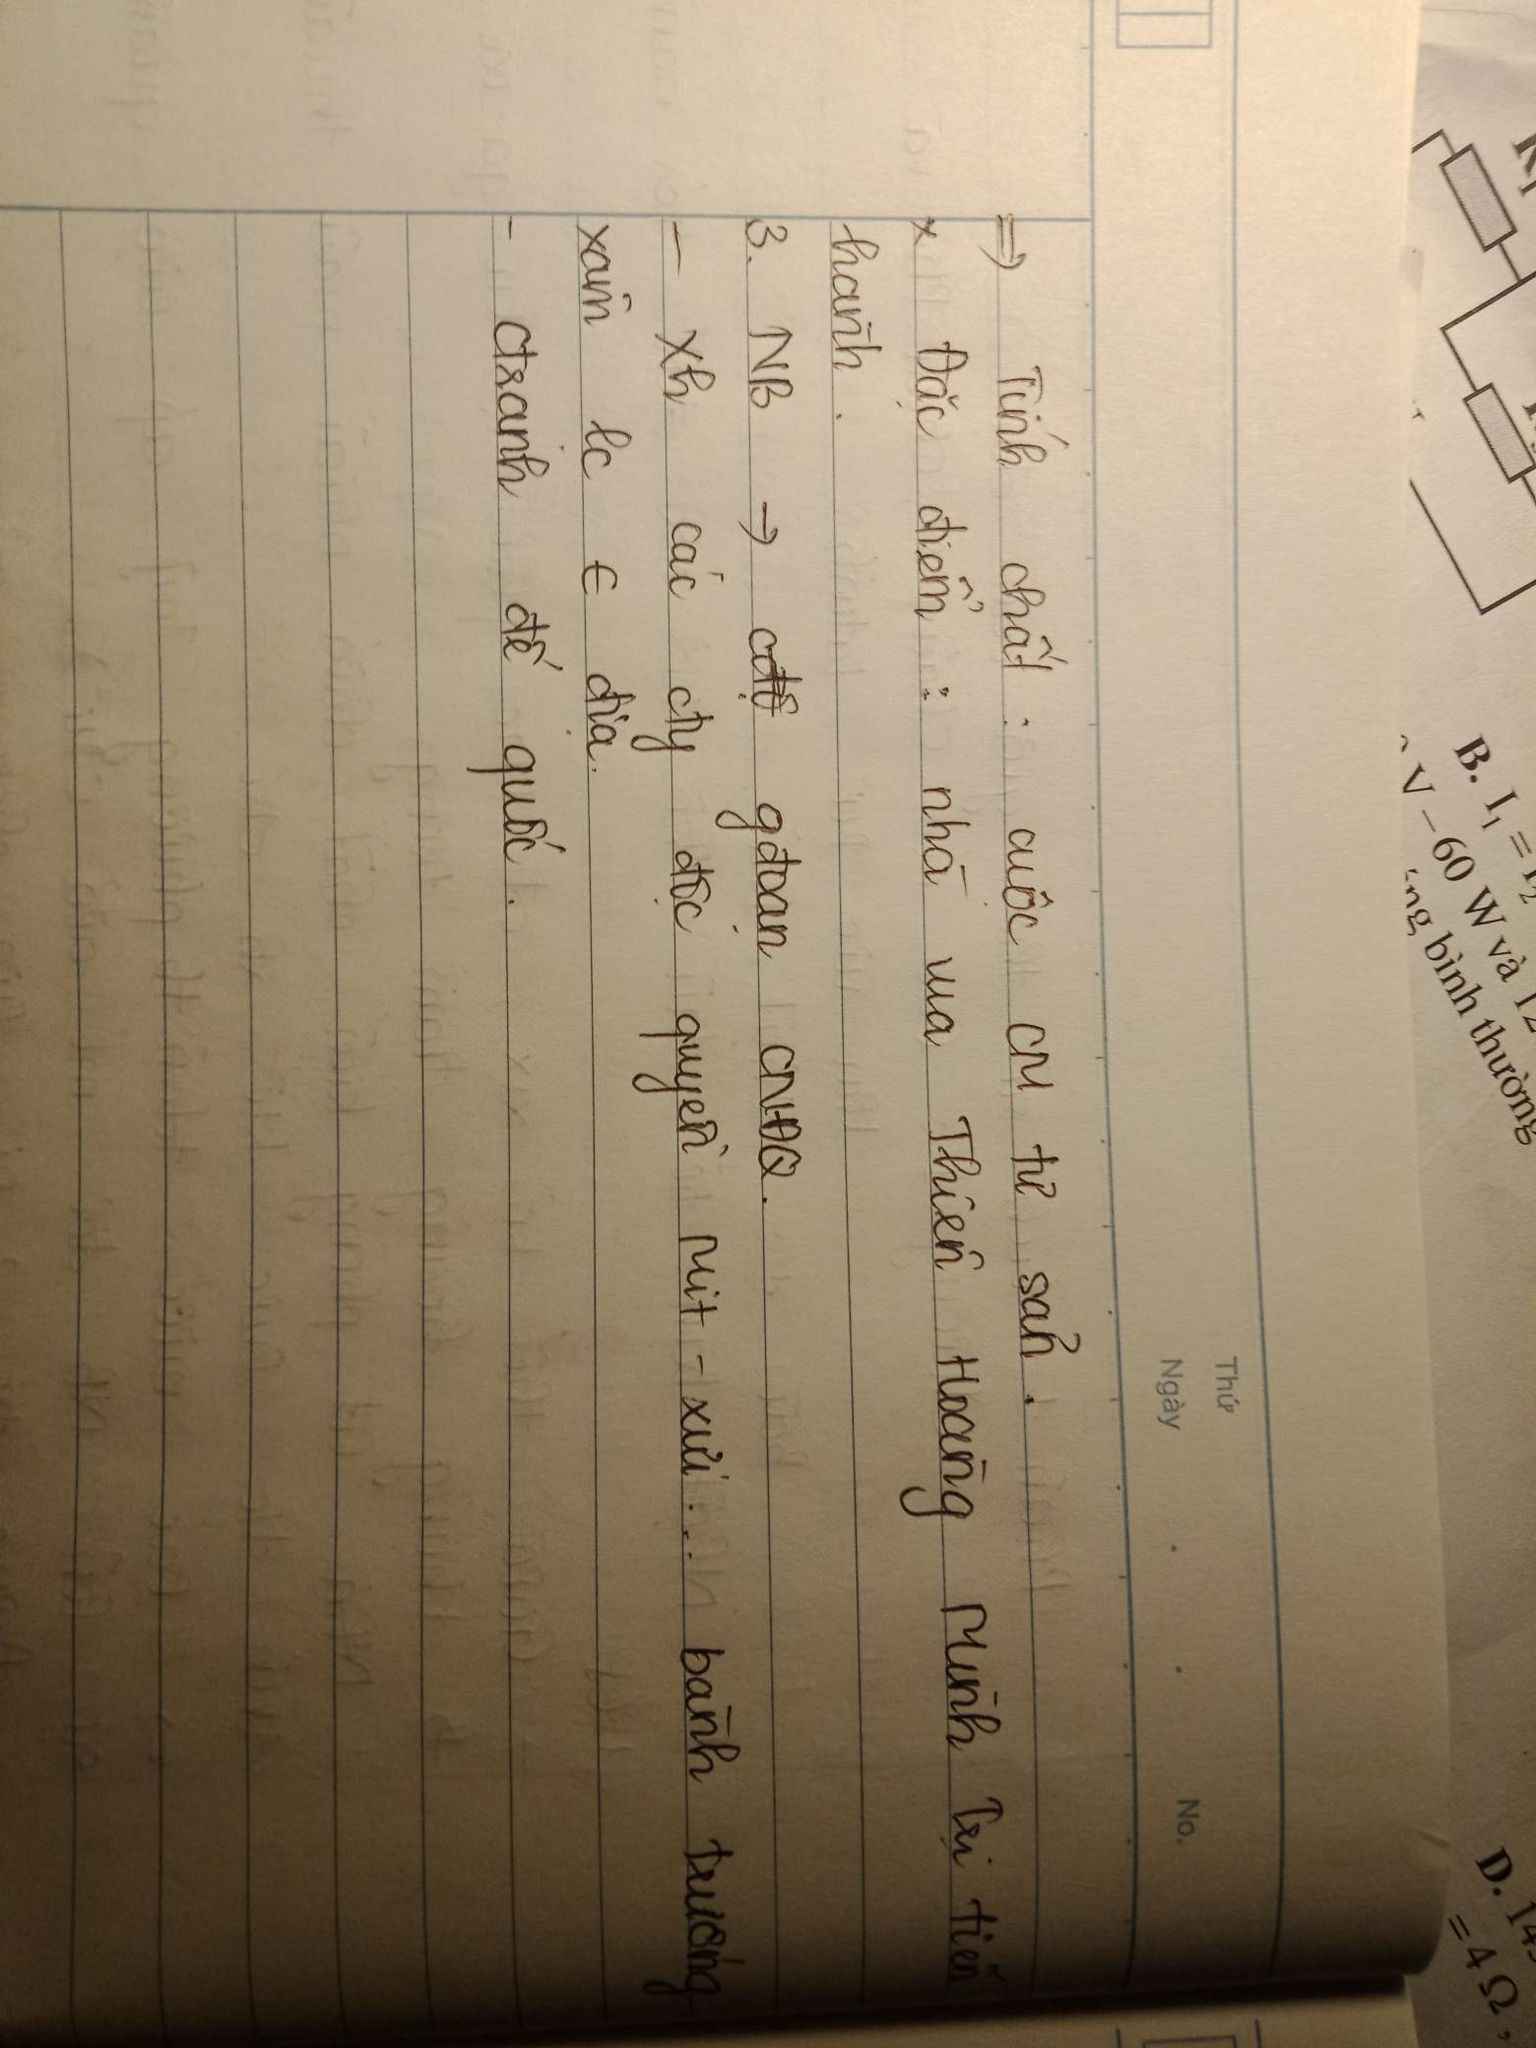 Thứ
Ngày . . No.
=> Tính chất : cuộc CM tư sản .
x Đặc điểm : nhà vua Thiên Hoàng Minh Trị tiến
hành .
3. NB → gđoạn CNĐQ .
- Xh các cty độc quyền Mit - xưi... bành trướng
xâm lc € địa.
- Ctranh đế quốc .
B. I₁ = I₂
V – 60 W và 12
bình thường
D.
= 4 Ω ,